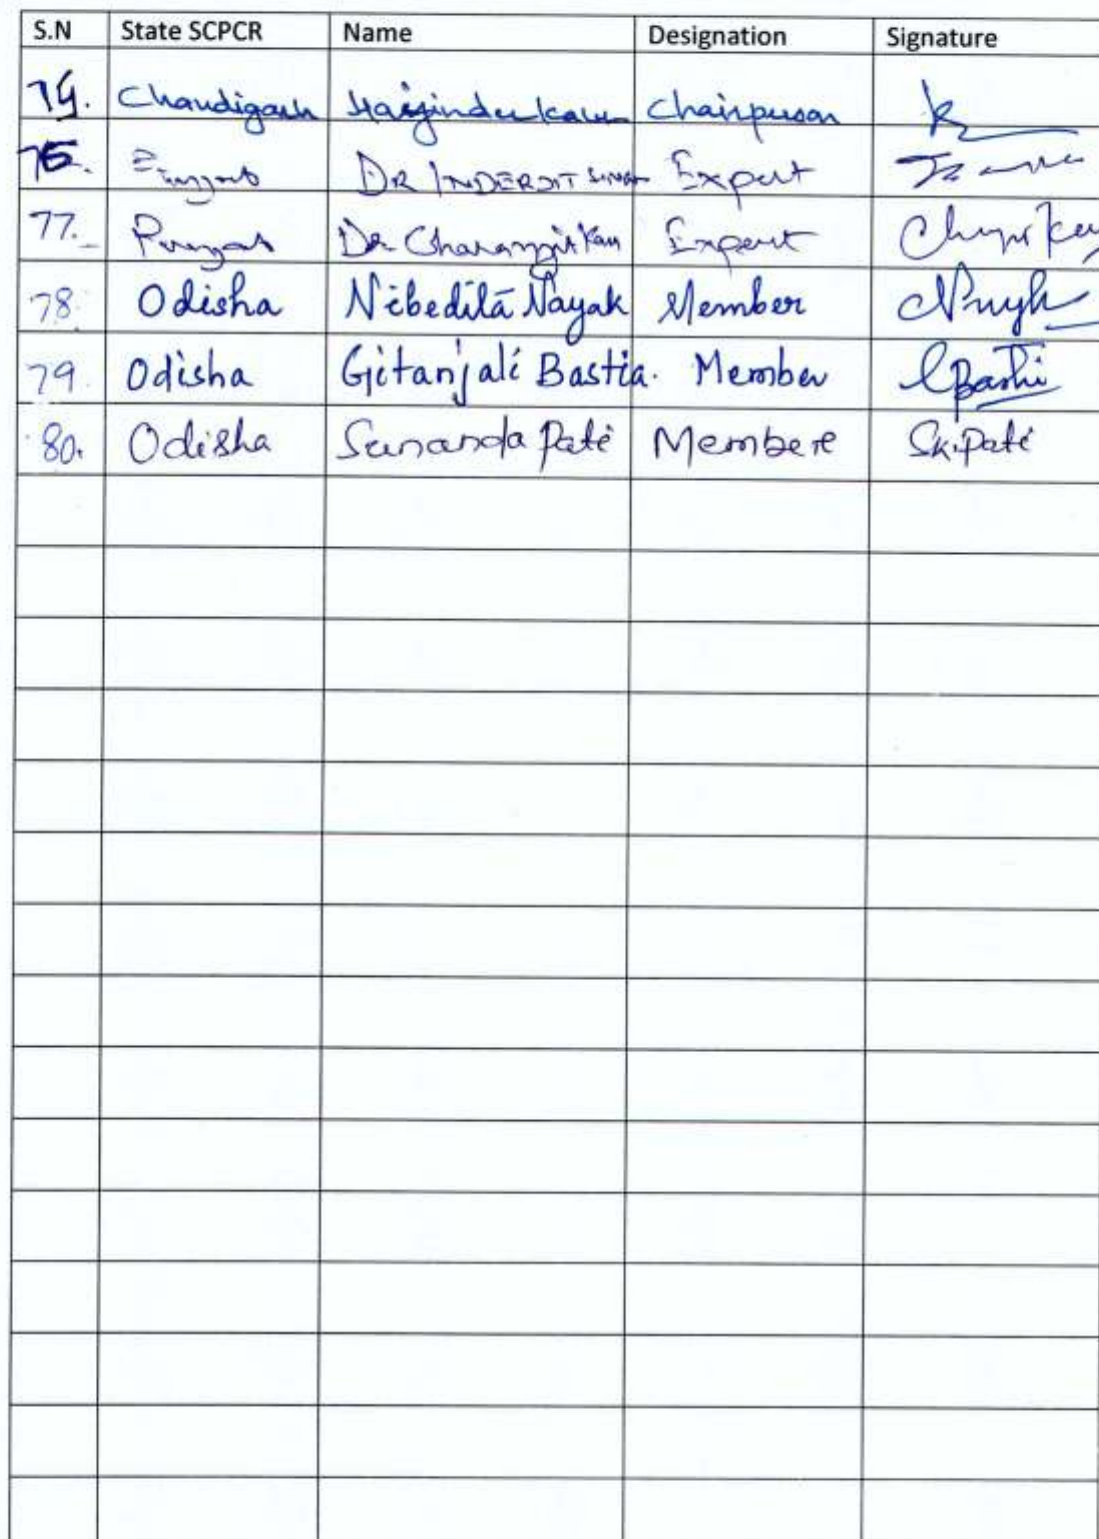 S.N State SCPCR Name Designation Signature
Chandigarh Harjinder Kaur Chairperson
Punjab DR INDERJIT SINGH Expert
77. Punjab Dr Charanjit Kaur Expert
78. Odisha Nibedita Nayak Member
79. Odisha Gitanjali Bastia. Member
80. Odisha Sunanda Pati Membere Sk.Pati